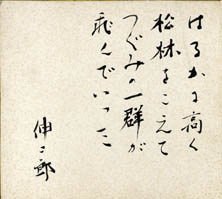 はるかに高く
松林をこえて
つぐみの一群が
飛んでいった
伸二郎